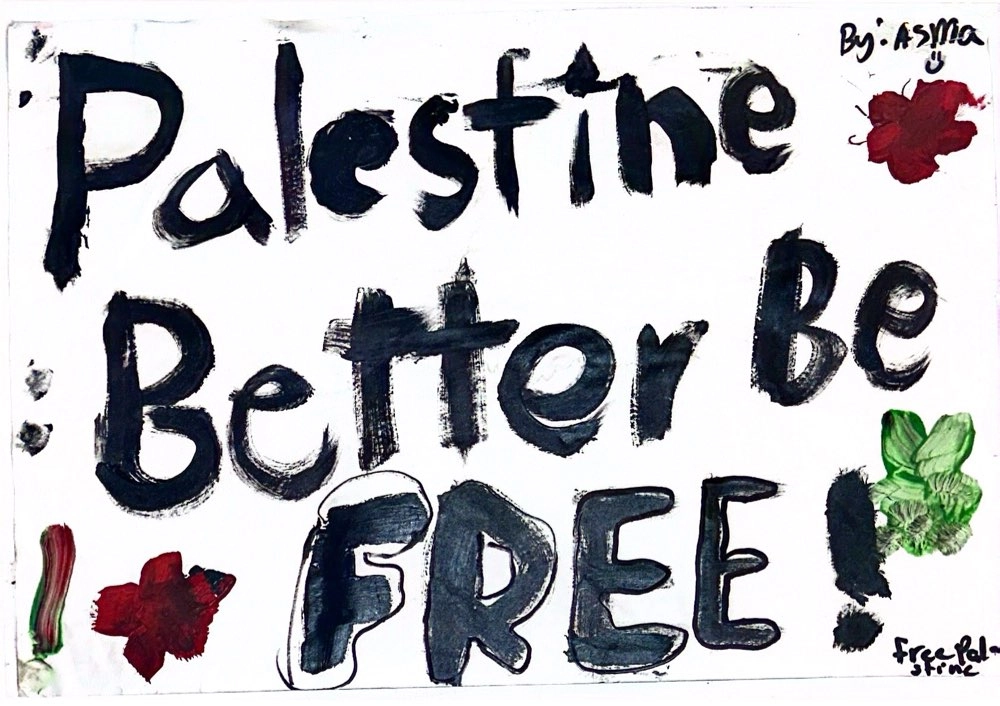 By: ASMA
Palestine
Better Be
FREE!
Free Pale
stine